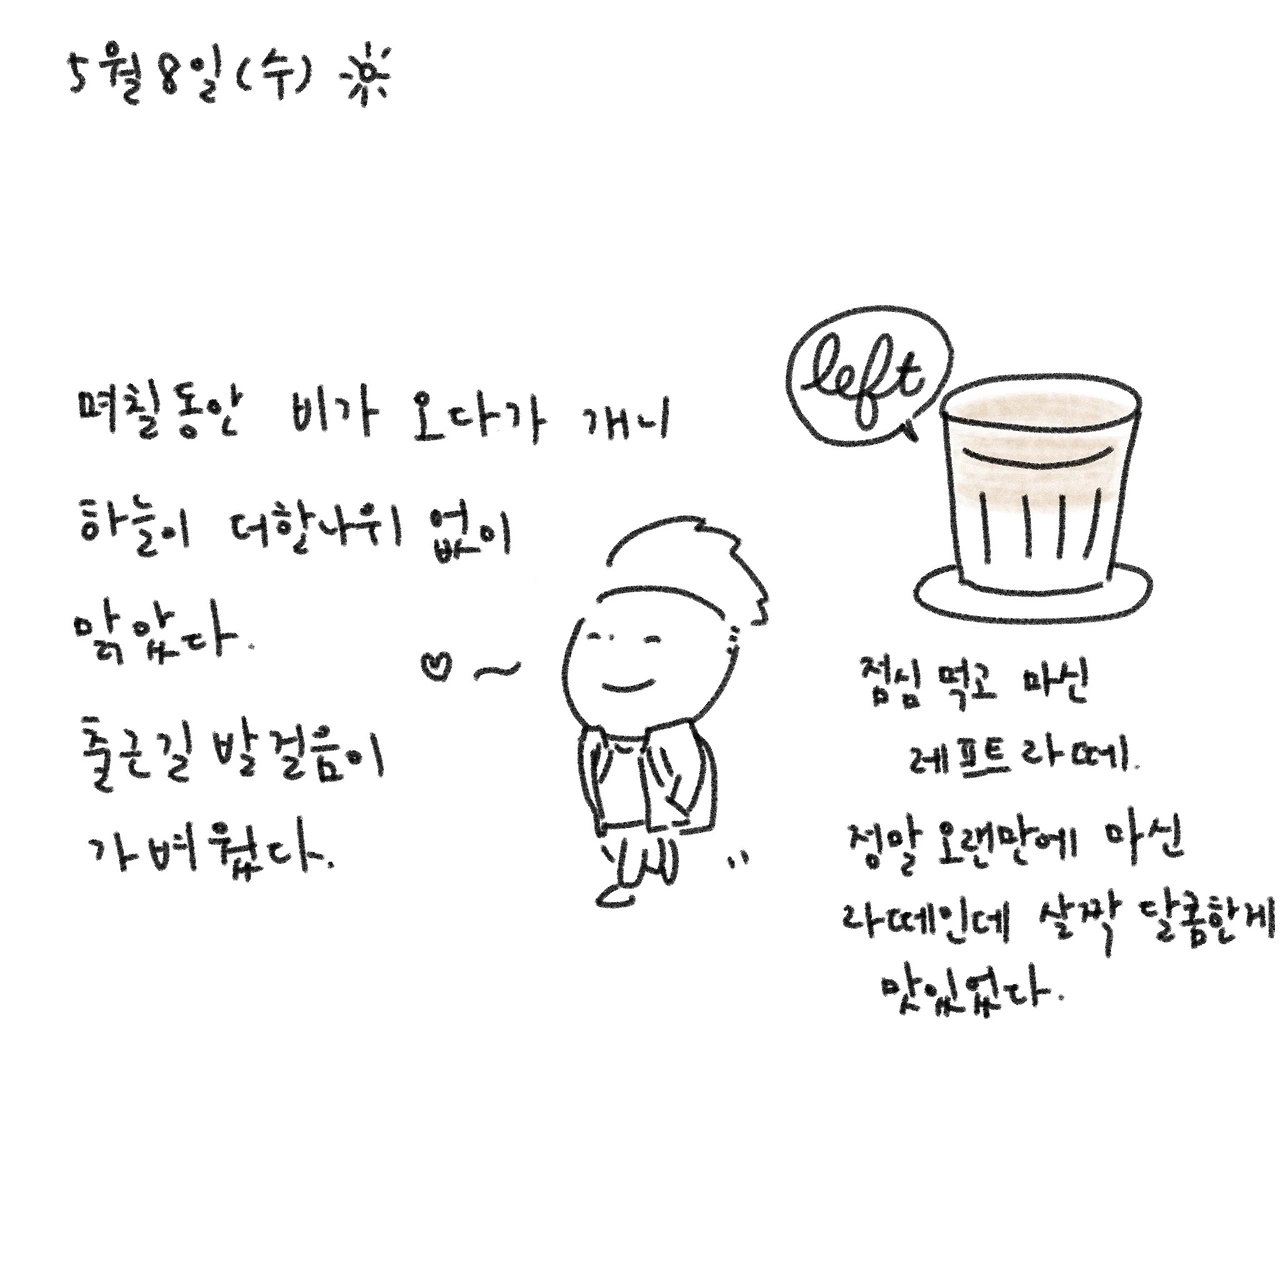 5월 8일 (수)
며칠동안 비가 오다가 개니
하늘이 더할나위 없이
맑았다.
출근길 발걸음이
가벼웠다.
left
점심 먹고 마신
레프트 라떼.
정말 오랜만에 마신
라떼인데 살짝 달콤한게
맛있었다.